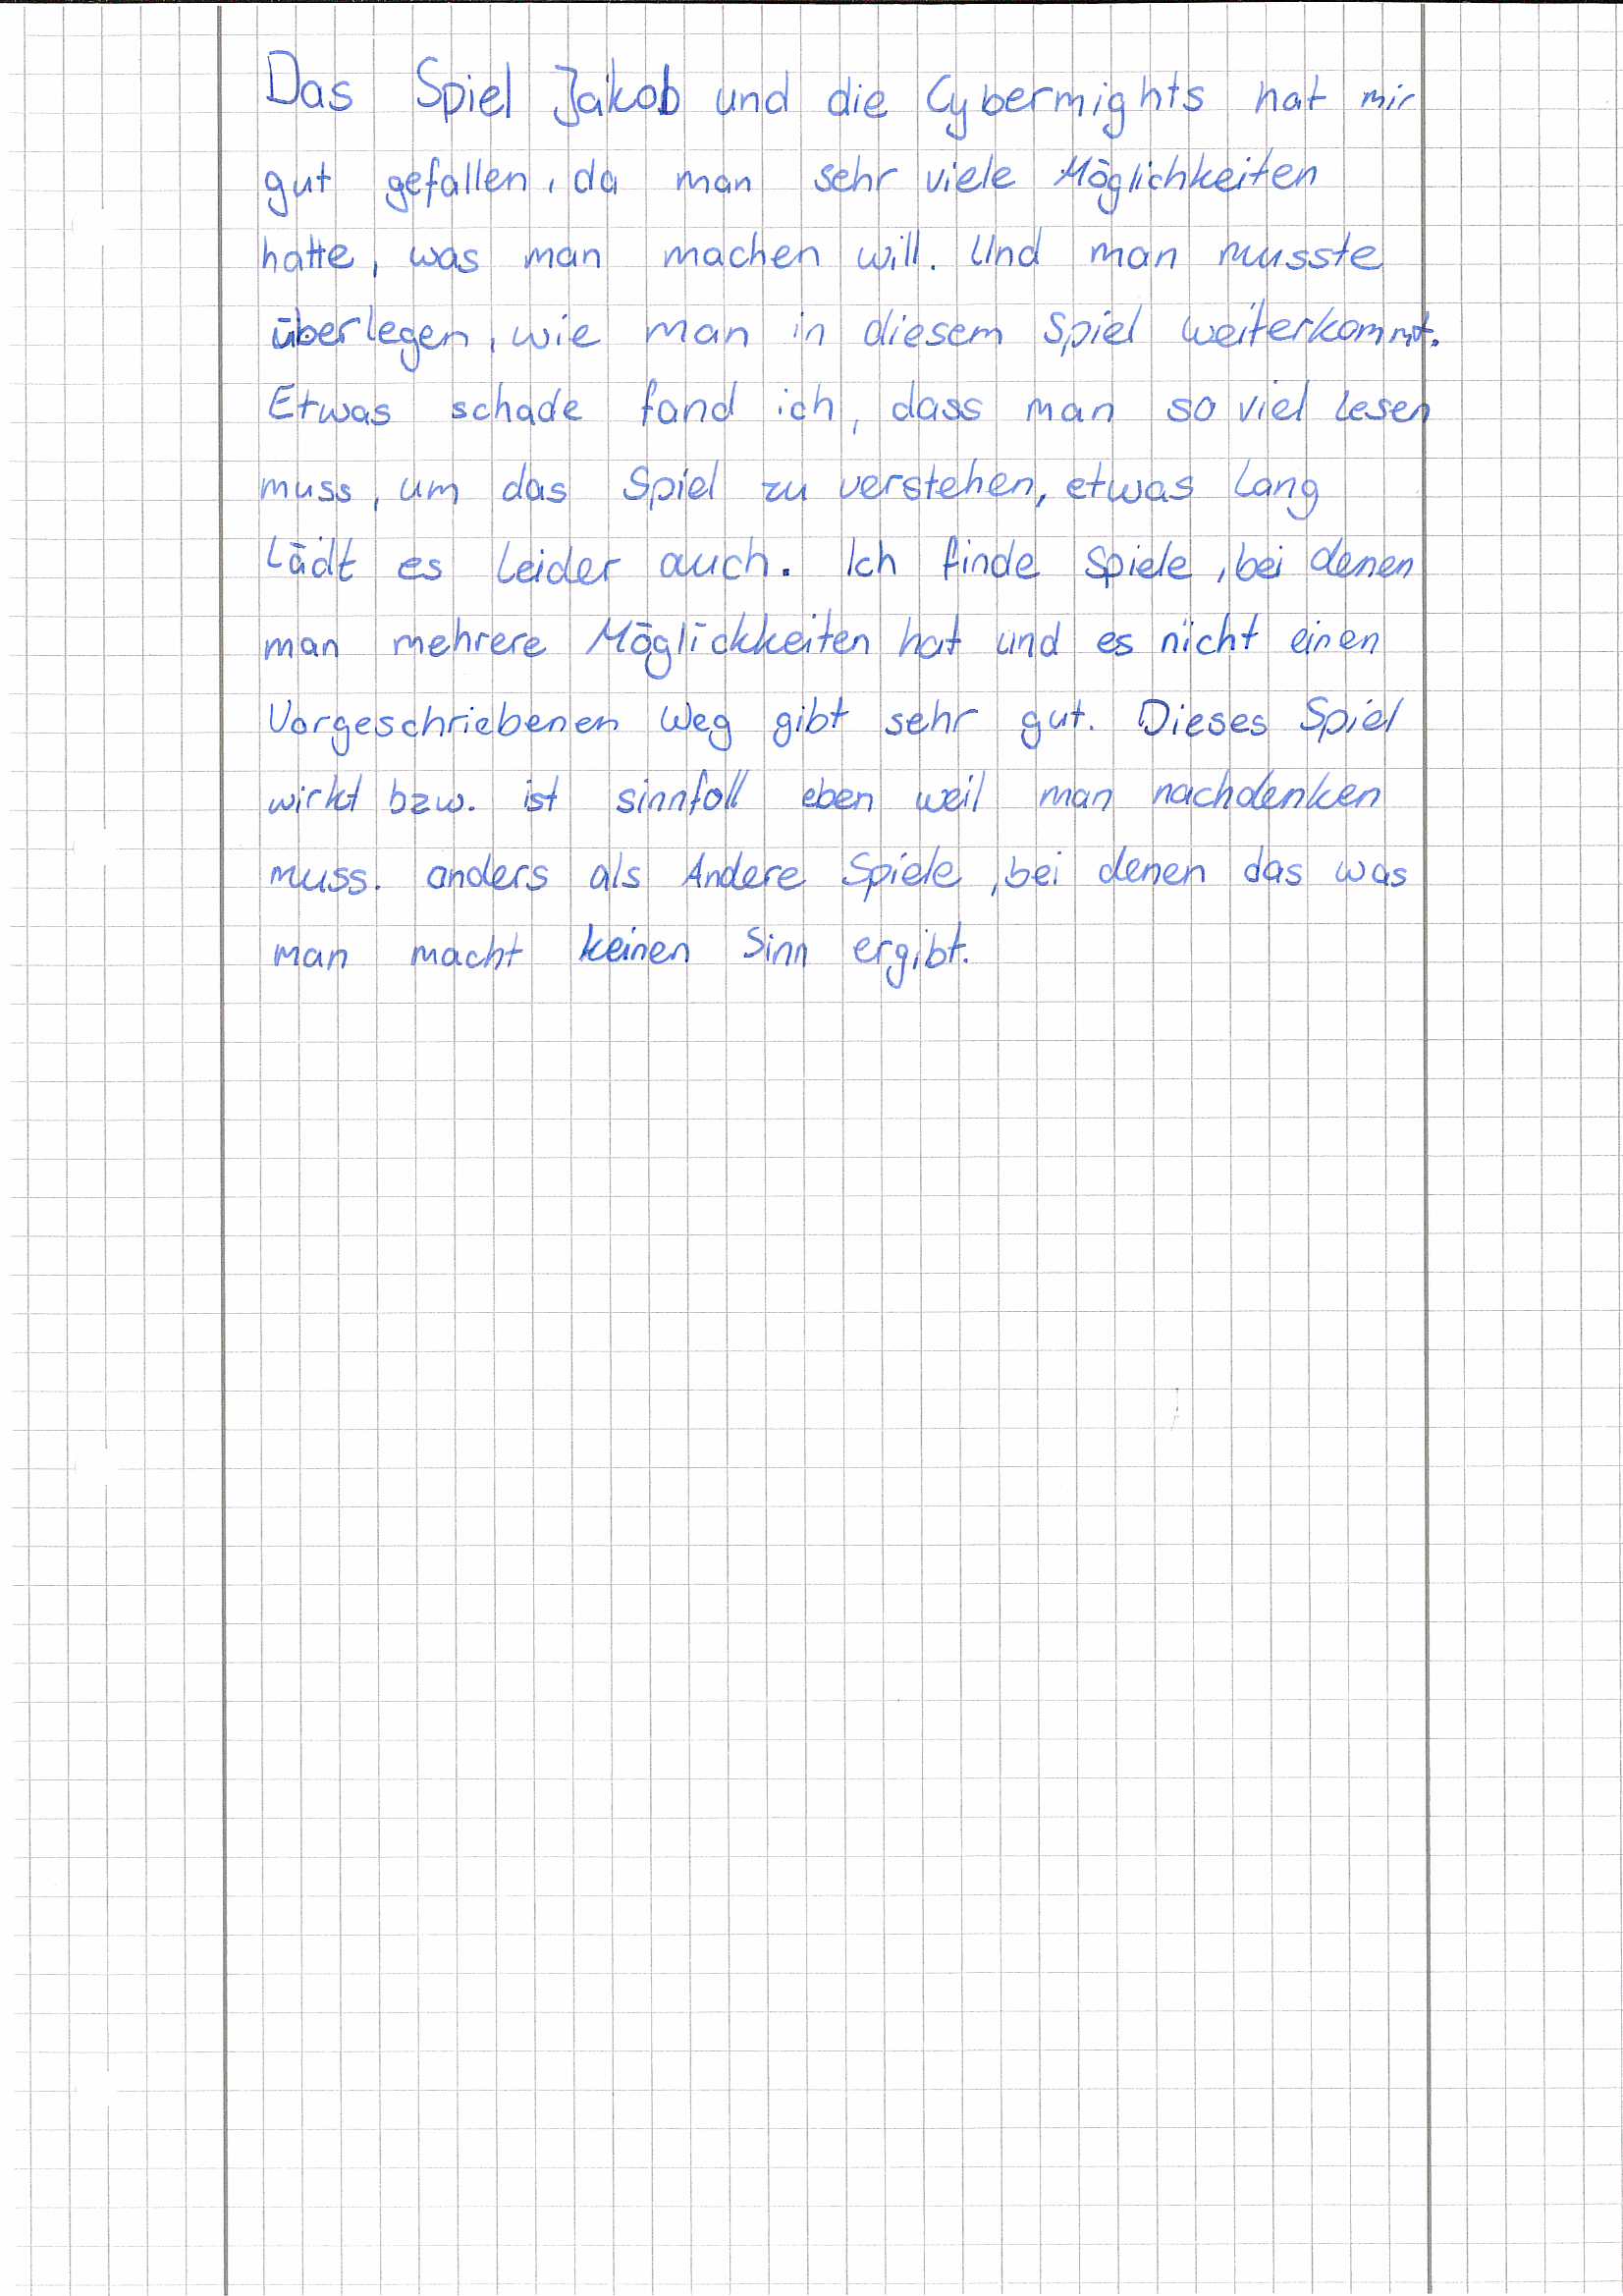 Das Spiel Jakob und die Cybermights hat mir
gut gefallen, da man sehr viele Möglichkeiten
hatte, was man machen will. Und man musste
überlegen, wie man in diesem Spiel weiterkommt.
Etwas schade fand ich, dass man so viel lesen
muss, um das Spiel zu verstehen, etwas lang
lädt es leider auch. Ich finde Spiele, bei denen
man mehrere Möglickkeiten hat und es nicht einen
Vorgeschriebenen Weg gibt sehr gut. Dieses Spiel
wirkt bzw. ist sinnfoll eben weil man nachdenken
muss. anders als Andere Spiele, bei denen das was
man macht keinen Sinn ergibt.